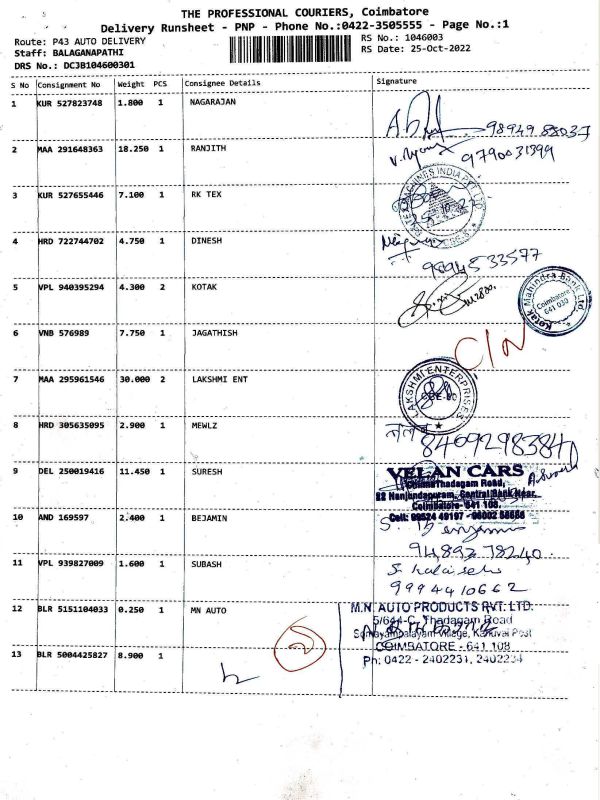 THE PROFESSIONAL COURIERS, Coimbatore
Delivery Runsheet - PNP - Phone No.:0422-3505555 - Page No.:1
Route: P43 AUTO DELIVERY
RS No.: 1046003
Staff: BALAGANAPATHI
RS Date: 25-Oct-2022
DRS No.: DCJB104600301
S No Consignment No Weight PCS Consignee Details Signature
1 KUR 527823748 1.800 1 NAGARAJAN
2 MAA 291648363 18.250 1 RANJITH
9790031399
3 KUR 527655446 7.100 1 RK TEX
4 HRD 722744702 4.750 1 DINESH
9894533577
5 VPL 940395294 4.300 2 KOTAK
Kotak Mahindra Bank Ltd.
Coimbatore
641 030
6 VNB 576989 7.750 1 JAGATHISH
7 MAA 295961546 30.000 2 LAKSHMI ENT
LAKSHMI ENTERPRISES
8 HRD 305635095 2.900 1 MEWLZ
9 DEL 250019416 11.450 1 SURESH
VELAN CARS
Thadagam Road,
22 Nanjundapuram, Central Bank Near,
Coimbatore- 641 108.
Cell: 99524 49197
10 AND 169597 2.400 1 BEJAMIN
11 VPL 939827009 1.600 1 SUBASH
9994410662
12 BLR 5151104033 0.250 1 MN AUTO
M.N. AUTO PRODUCTS PVT. LTD.
5/644-C, Thadagam Road
Somayampalayam Village, Kanuvai Post
COIMBATORE - 641 108
Ph: 0422 - 2402231, 2402234
13 BLR 5004425827 8.900 1